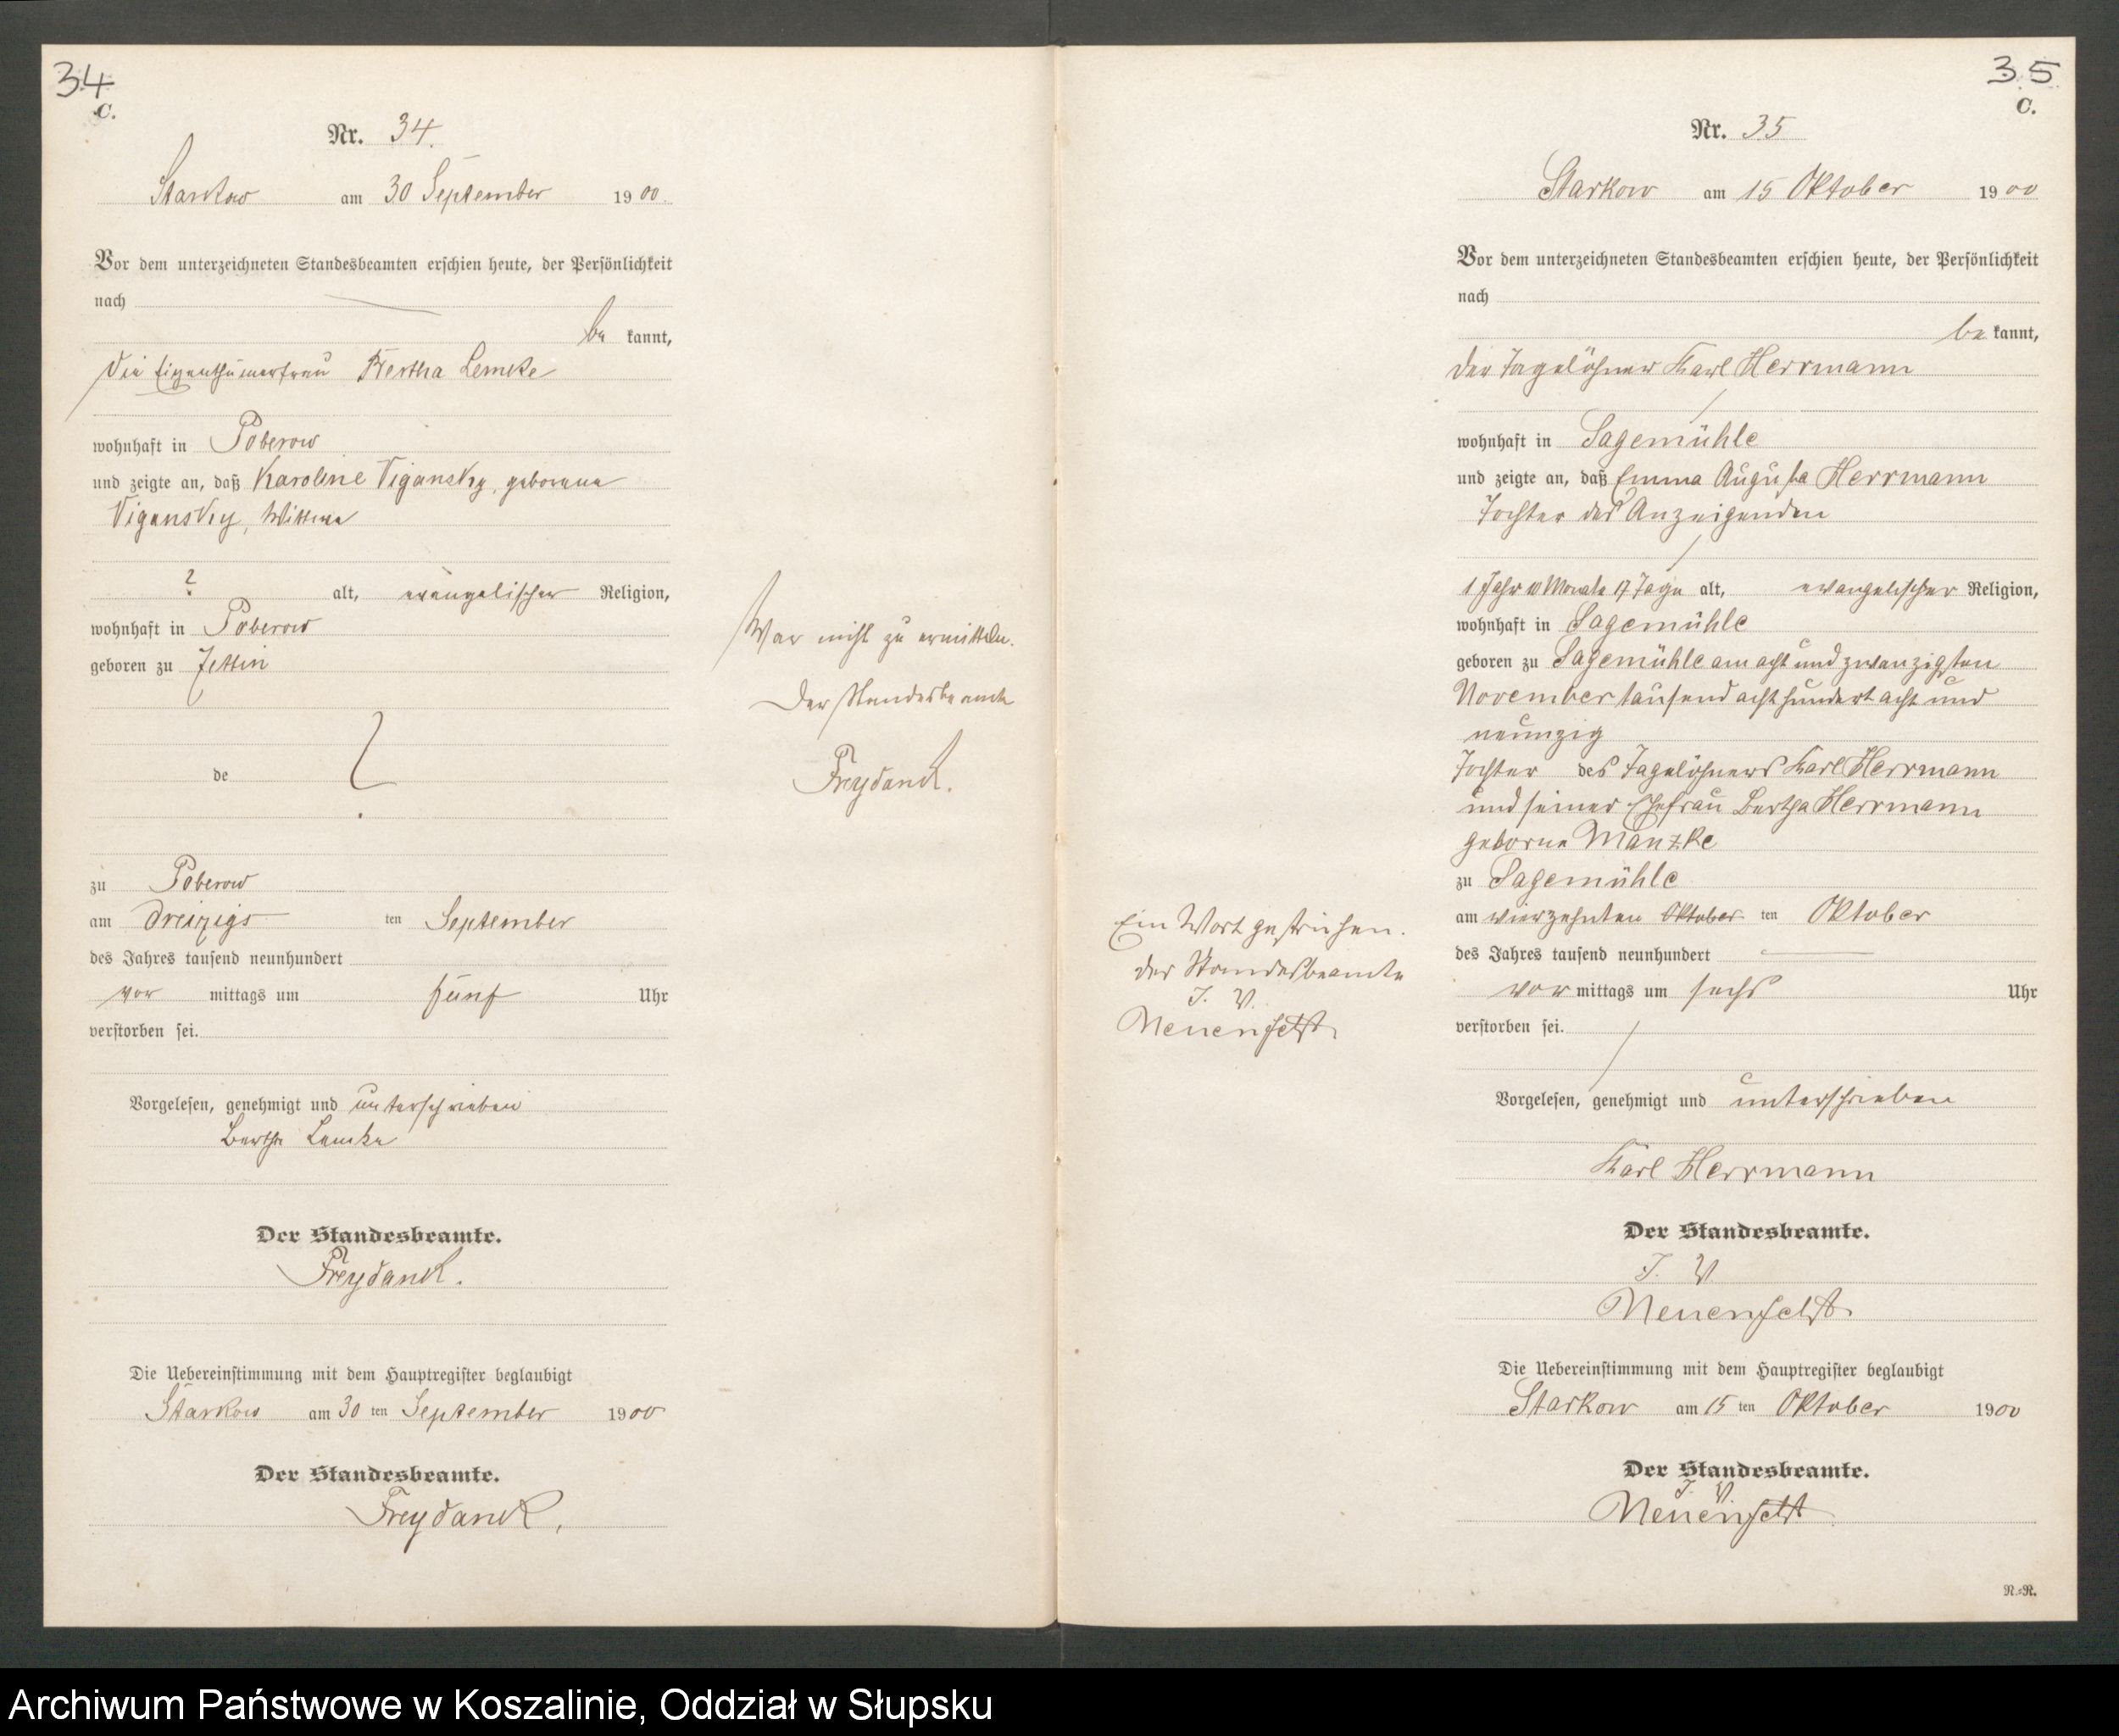 34
C.
Nr. 34.
Starkow am 30 September 1900.
Vor dem unterzeichneten Standesbeamten erschien heute, der Persönlichkeit
nach
be kannt,
die Eigenthümerfrau Bertha Lemke
wohnhaft in Poberow
und zeigte an, daß Karoline Vigansky, geborene
Vigansky, Wittwe
? alt, evangelischer Religion,
wohnhaft in Poberow
geboren zu Jettin
de ?
zu Poberow
am dreizigs ten September
des Jahres tausend neunhundert
vor mittags um fünf Uhr
verstorben sei.
Vorgelesen, genehmigt und unterschrieben
Bertha Lemke
Der Standesbeamte.
Freydank.
Die Uebereinstimmung mit dem Hauptregister beglaubigt
Starkow am 30 ten September 1900
Der Standesbeamte.
Freydank.
War nicht zu ermitteln.
Der Standesbeamte
Freydank.
35
C.
Nr. 35
Starkow am 15 Oktober 1900
Vor dem unterzeichneten Standesbeamten erschien heute, der Persönlichkeit
nach
be kannt,
der Tagelöhner Karl Herrmann
wohnhaft in Sagemühle
und zeigte an, daß Emma Auguste Herrmann
Tochter des Anzeigenden
1 Jahr 10 Monate 17 Tage alt, evangelischer Religion,
wohnhaft in Sagemühle
geboren zu Sagemühle am acht und zwanzigsten
November tausend acht hundert acht und
neunzig
Tochter des Tagelöhners Karl Herrmann
und seiner Ehefrau Bertha Herrmann
geborne Manzke
zu Sagemühle
am vierzehnten Oktober ten Oktober
des Jahres tausend neunhundert
vor mittags um sechs Uhr
verstorben sei.
Vorgelesen, genehmigt und unterschrieben
Karl Herrmann
Der Standesbeamte.
J. V.
Neuenfeldt
Die Uebereinstimmung mit dem Hauptregister beglaubigt
Starkow am 15 ten Oktober 1900
Der Standesbeamte.
J. V.
Neuenfeldt
Ein Wort gestrichen.
Der Standesbeamte
J. V.
Neuenfeldt
R.=R.
Archiwum Państwowe w Koszalinie, Oddział w Słupsku